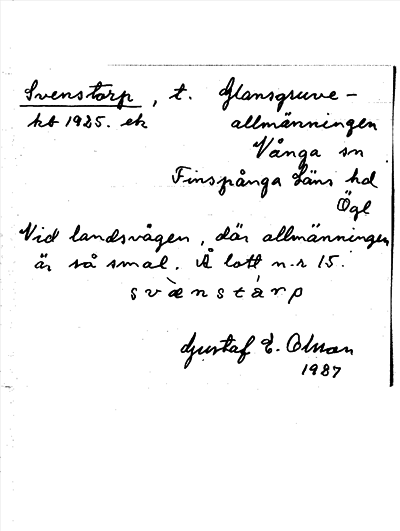 Svenstorp, t. Glansgruve-
kt 1925. ek allmänningen
Vånga sn
Finspånga läns hd
Ögl
Vid landsvägen, där allmänningen
är så smal. Å lott n.r 15.
svæ̀nstárp
Gustaf E. Olsson
1987